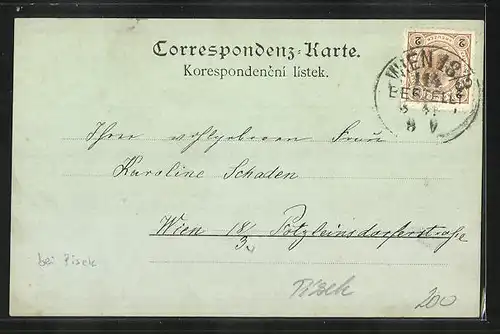 Correspondenz-Karte.
Korespondenční lístek.
WIEN 18
114
BESTELLT
8 V
Ihrer wohlgeboren Frau
Karoline Schaden
Wien 18/3 Pötzleinsdorferstraße
bei Pisek
Pisek
200